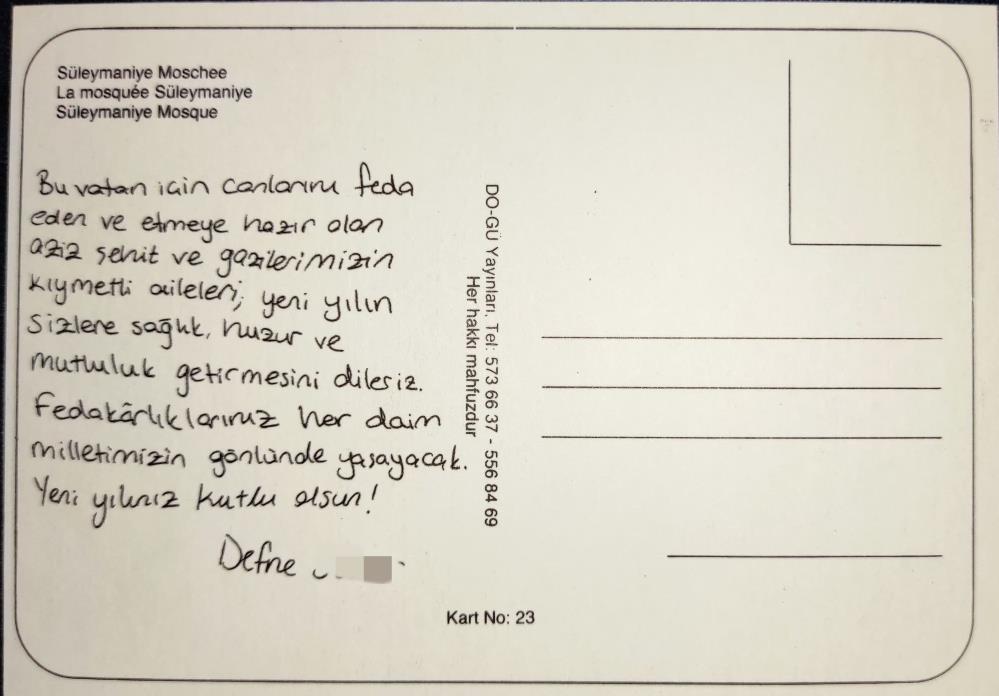 Süleymaniye Moschee
La mosquée Süleymaniye
Süleymaniye Mosque
Bu vatan için canlarını feda
eden ve etmeye hazır olan
aziz şehit ve gazilerimizin
kıymetli aileleri, yeni yılın
sizlere sağlık, huzur ve
mutluluk getirmesini dileriz.
Fedakârlıklarınız her daim
milletimizin gönlünde yaşayacak.
Yeni yılınız kutlu olsun!
Defne
DO-GÜ Yayınları, Tel: 573 66 37 - 556 84 69
Her hakkı mahfuzdur
Kart No: 23